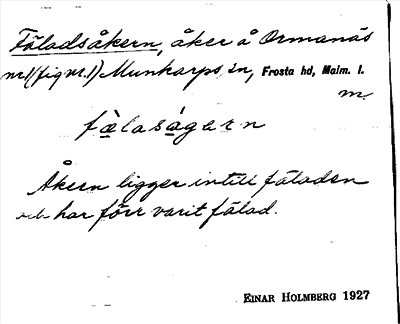 Fäladsåkern, åker å Ormanäs
nr 1 (fig nr. 1) Munkarps sn, Frosta hd, Malm. l.
m.
fàlaságern
Åkern ligger intill fäladen
och har förr varit fälad.
EINAR HOLMBERG 1927